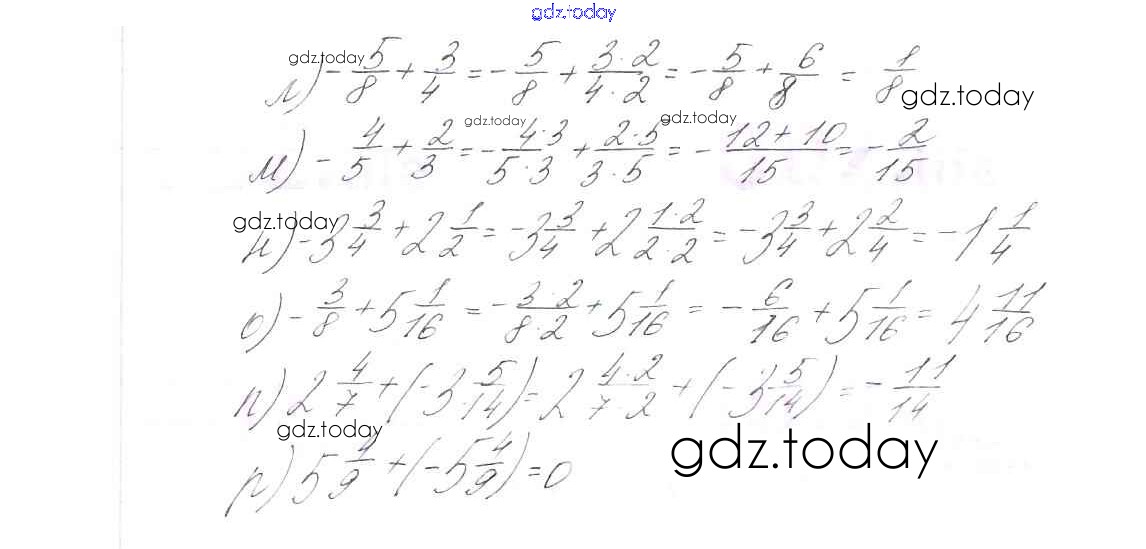 gdz.today
gdz.today
л) -5/8 + 3/4 = -5/8 + 3·2/4·2 = -5/8 + 6/8 = 1/8
gdz.today
gdz.today gdz.today
м) -4/5 + 2/3 = -4·3/5·3 + 2·5/3·5 = -12+10/15 = -2/15
gdz.today
н) -3 3/4 + 2 1/2 = -3 3/4 + 2 1·2/2·2 = -3 3/4 + 2 2/4 = -1 1/4
о) -3/8 + 5 1/16 = -3·2/8·2 + 5 1/16 = -6/16 + 5 1/16 = 4 11/16
п) 2 4/7 + (-3 5/14) = 2 4·2/7·2 + (-3 5/14) = -11/14
gdz.today
gdz.today
р) 5 4/9 + (-5 4/9) = 0